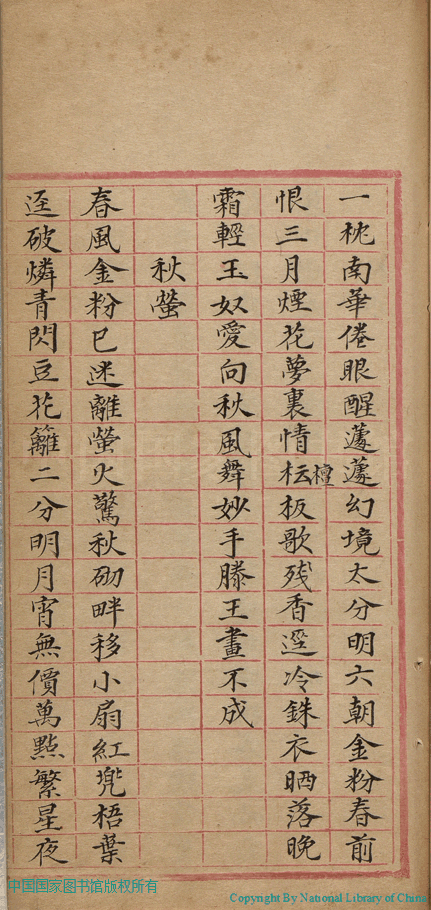 一枕南華倦眼醒蘧蘧幻境太分明六朝金粉春前
恨三月煙花夢裏情枟板歌残香逕冷銖衣晒落晚
檀
霜輕玉奴愛向秋風舞妙手滕王畫不成
秋螢
春風金粉已迷離螢火驚秋砌畔移小扇紅兜梧葉
逕破燐青閃豆花籬二分明月宵無價萬點繁星夜
中国国家图书馆版权所有
Copyright By National Library of China